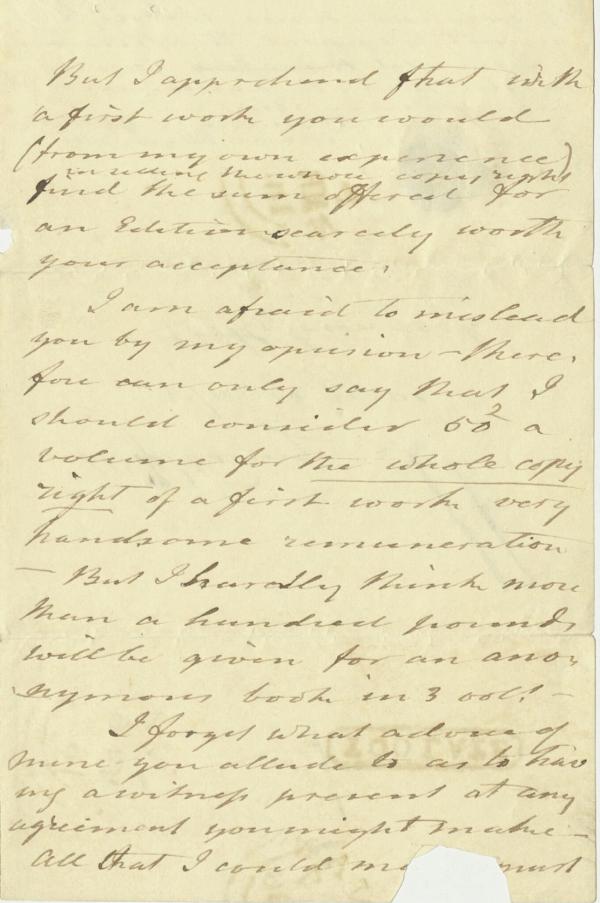 But I apprehend that with
a first work you would
(from my own experience)
including the whole copyright
find the sum offered for
an Edition scarcely worth
your acceptance.
I am afraid to mislead
you by my opinion – there,
fore can only say that I
should consider 50£ a
volume for the whole copy
right of a first work very
handsome remuneration
— But I hardly think more
than a hundred pounds
will be given for an ano,
nymous book in 3 vols! –
I forget what advice of
mine you allude to as to hav
ing a witness present at any
agreement you might make –
All that I could must